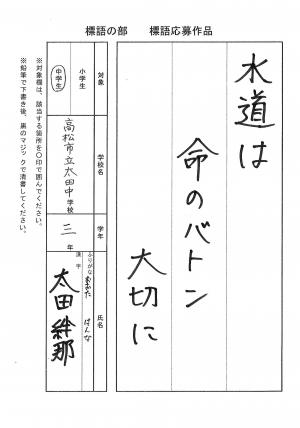 標語の部　標語応募作品
水道は
命のバトン
大切に
対象
小学生
中学生
学校名
高松市立太田中学校
学年
三年
氏名
ふりがな
おおた　はんな
漢字
太田絆那
※対象欄は、該当する箇所を〇印で囲んでください。
※鉛筆で下書き後、黒のマジックで清書してください。